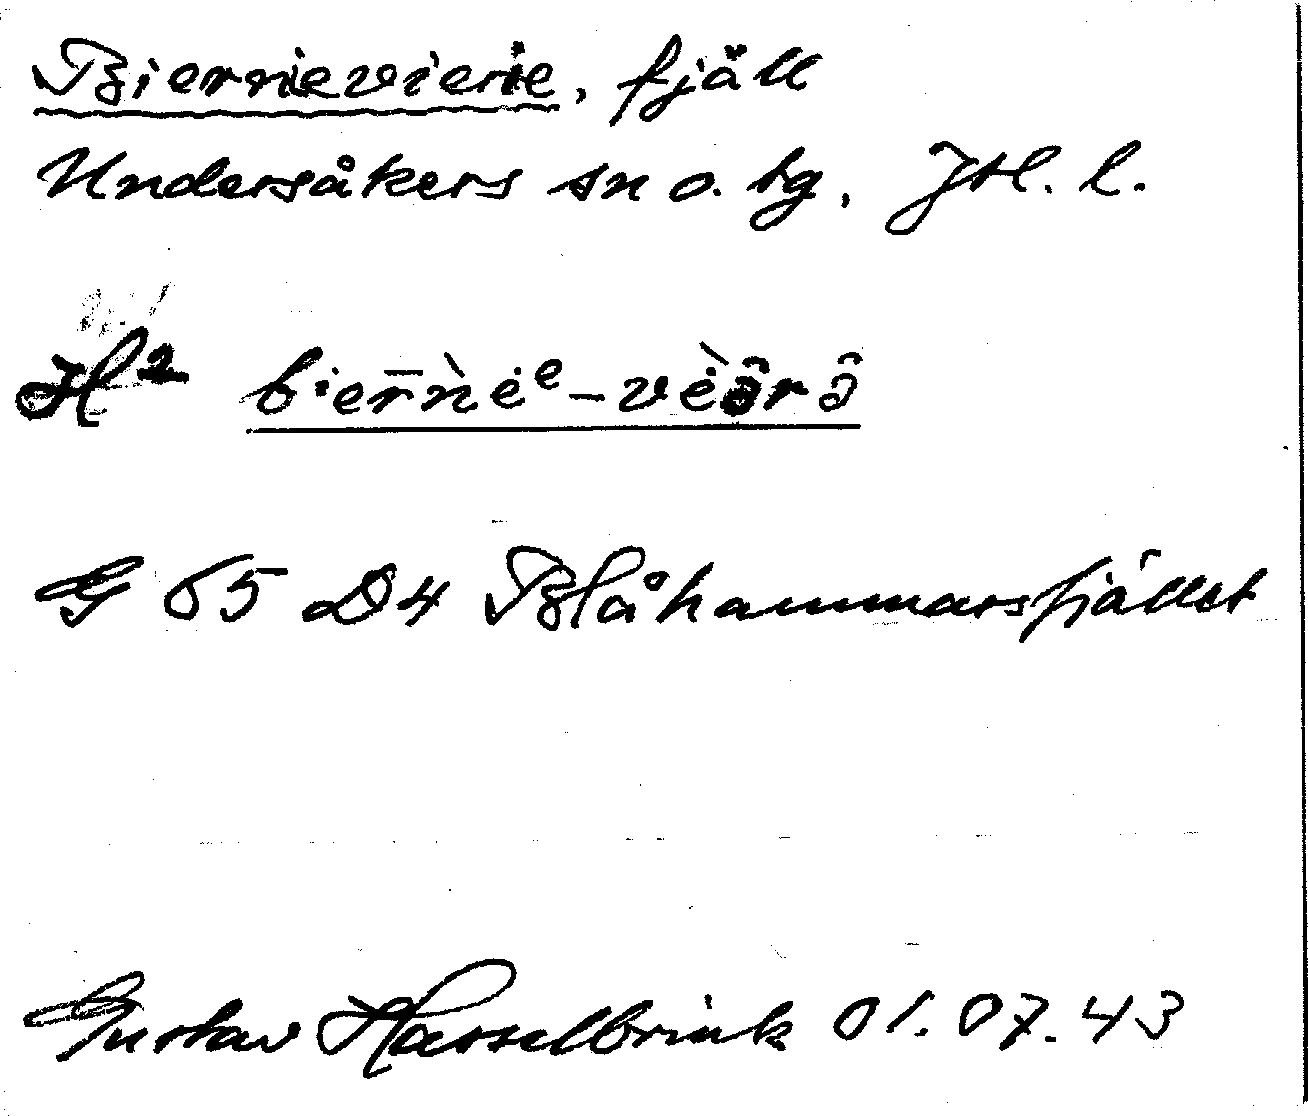 Biernievierie, fjäll
Undersåkers sn o. tg, Jtl. l.
H² bier̄ǹėᵉ-vė̀ə̂rə̂
G 65 D4 Blåhammarsfjället
Gustav Hasselbrink 01.07.43